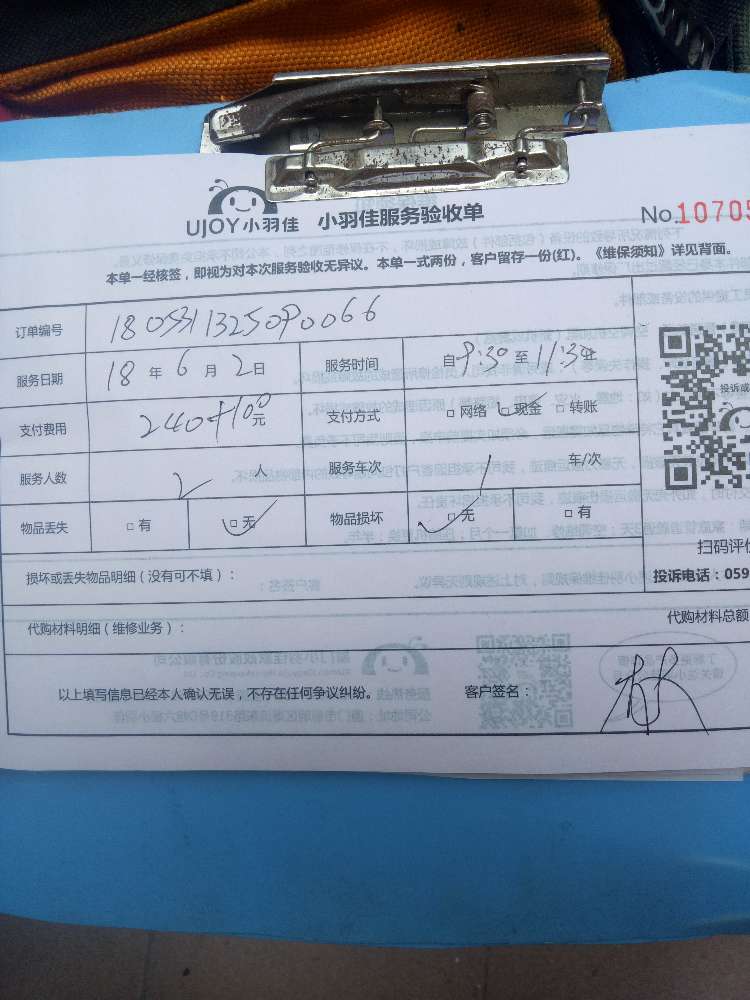 UJOY小羽佳 小羽佳服务验收单
No.10705
本单一经核签，即视为对本次服务验收无异议。本单一式两份，客户留存一份(红)。《维保须知》详见背面。
订单编号 1805311325090066
服务日期 18 年 6 月 2 日 服务时间 自 9:30 至 11:30
支付费用 240+100 元 支付方式 □ 网络 □ 现金 □ 转账
服务人数 2 人 服务车次 1 车/次
物品丢失 □ 有 □ 无 物品损坏 □ 无 □ 有
投诉或
扫码评价
损坏或丢失物品明细（没有可不填）：
投诉电话：059
代购材料明细（维修业务）：
代购材料总额
以上填写信息已经本人确认无误，不存在任何争议纠纷。 客户签名：